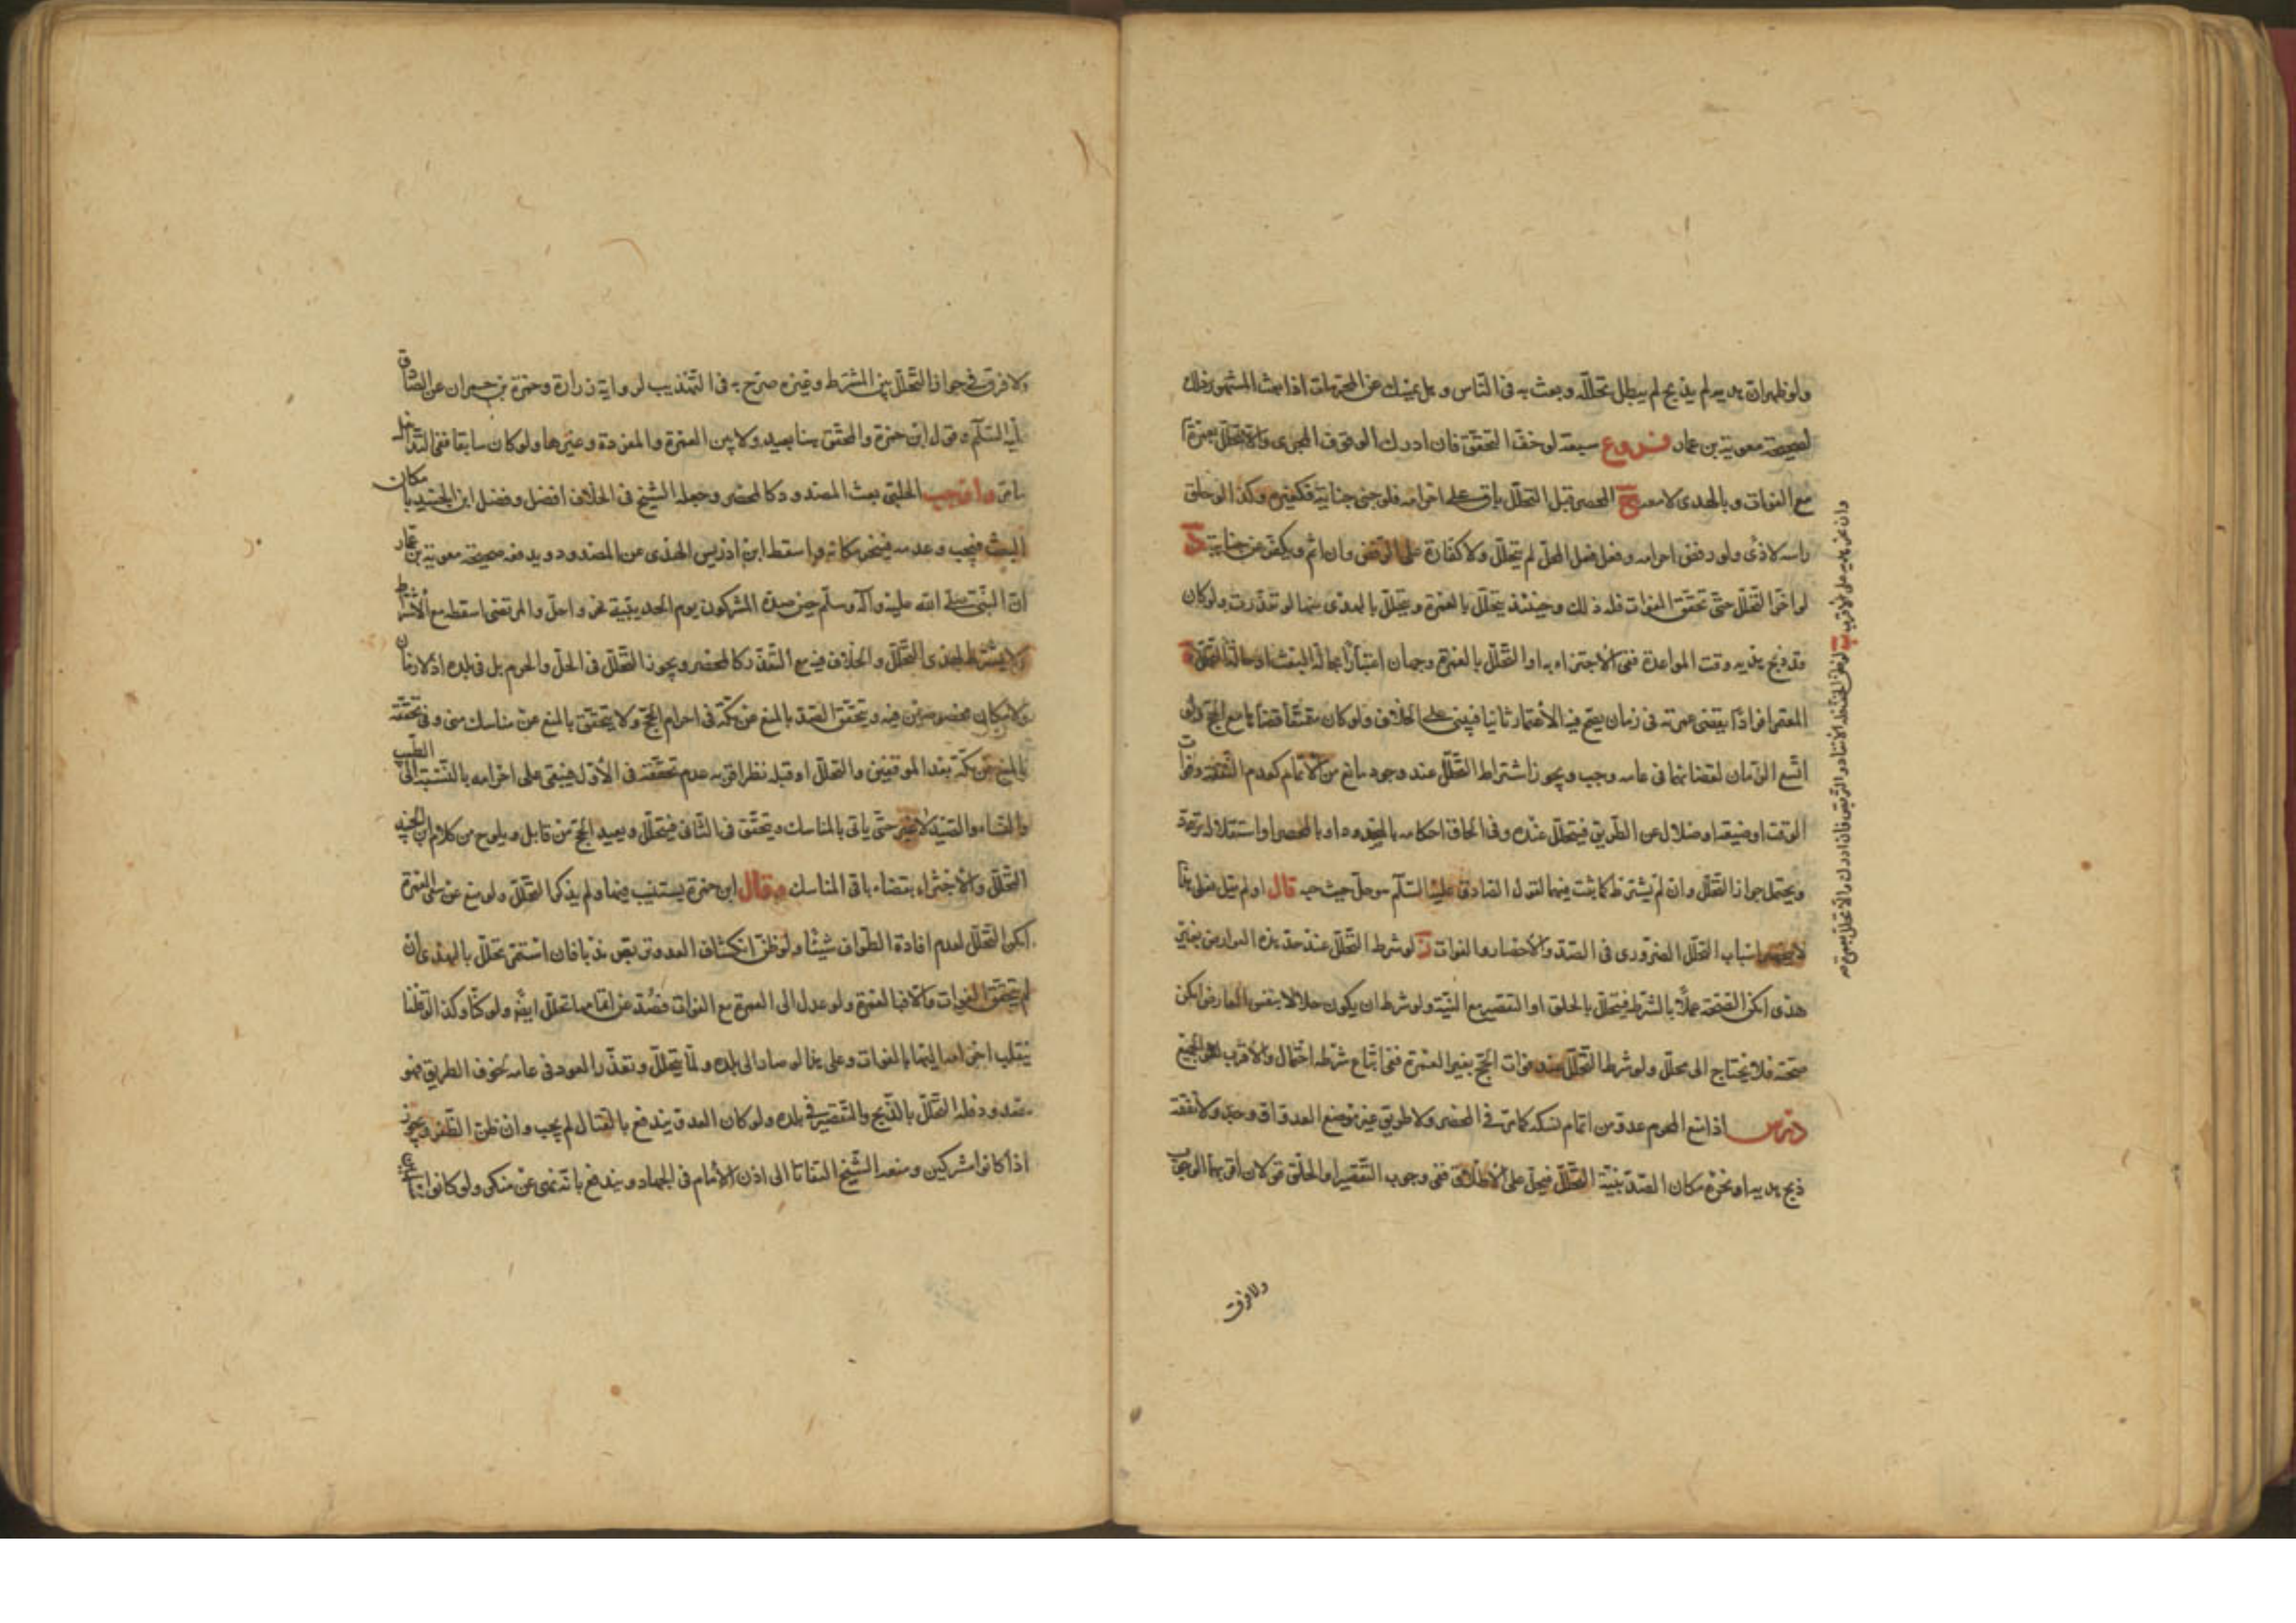 ولو ظهر ان هديه لم يذبح لم يبطل تحلله وبعث به في القابل وهل يمسك عن المحرمات اذا بعث المشهور ذلك
لصحيحة معوية بن عمار فروع سبعة لو خف التحق فان ادرك الموقف المجزى والا تحلل بعمرة
مع الفوات وبالهدى لا معه ب المحصر قبل التحلل باق على احرامه فلو جنى جناية فكغيره وكذا لو حلق
راسه لاذى ولو رفض احرامه وفعل فعل المحل لم يتحلل ولا كفارة على الرفض وان اثم ويكفر عن جنايته
لو اخر التحلل حتى تحقق الفوات فله ذلك وحينئذ يتحلل بالعمرة ويتحلل بالهدى عنها لو تعذرت ولو كان
قد ذبح هديه وقت المواعدة ففى الاجتزاء به او التحلل بالعمرة وجهان اعتبارا بحالة البعث او حالة التحلل
المعتمر افرادا يقضى عمرته فى زمان يصح فيه الاعتمار ثانيا فيبنى على الخلاف ولو كان متمتعا قضاها مع الحج ولو
اتسع الزمان لقضائها فى عامه وجب ويجوز اشتراط التحلل عند وجود مانع من الاتمام كعدم النفقة وفوات
الوقت او ضيقه او ضلال عن الطريق فيتحلل عنده وفى الحاق احكامه بالمصدود او بالمحصر او استقلاله تردد
ويحتمل جواز التحلل وان لم يشترط كما يثبت فيهما لقول الصادق عليه السلام هو حل حيث حبسه قال او لم يقل فعلى هذا
لا تنحصر اسباب التحلل الضرورى فى الصد والاحصار والفوات ز لو شرط التحلل عند حد هذه الموارد من غير
هدى امكن الصحة عملا بالشرط فيتحلل بالحلق او التقصير مع النية ولو شرط ان يكون حلالا بنفس العارض امكن
صحته فلا يحتاج الى محلل ولو شرط التحلل عند فوات الحج بغير العمرة ففى اتباع شرطه احتمال والاقرب المنع
درس اذا منع المحرم عدو من اتمام نسكه كما مر فى المحصر ولا طريق غير موضع العدو او وجد ولا نفقة
ذبح هديه او نحره مكان الصد بنية التحلل فيحل على الاطلاق ففى وجوب التقصير او الحلق قولان اقربهما الوجوب
ولا فرق
ولا فرق فى جواز التحلل بين المشترط وغيره صرح به فى التهذيب لرواية زرارة وحمزة بن حمران عن الصادق
عليه السلم وقول ابن حمزة والمحقق هنا بعيد ولا بين العمرة والمفردة وغيرها ولو كان سابقا ففى التداخل
ما مر واوجب الحلبى بعث المصدود كالمحصر وجعله الشيخ فى الخلاف افضل وفصل ابن الجنيد بامكان
البعث فيجب وعدمه فينحر مكانه واسقط ابن ادريس الهدى عن المصدود ويدفعه صحيحة معوية بن عمار
ان النبى صلى الله عليه وآله وسلم حين صده المشركون يوم الحديبية نحر واحل والمرتضى اسقطه مع الاشتراط
ولا يشترط لهدى التحلل والخلاف فيه مع التعذر كالمحصر ويجوز التحلل فى الحل والحرم بل فى بلده اذ لا زمان
ولا مكان مخصوصين فيه ويتحقق الصد بالمنع من مكة فى احرام الحج ولا يتحقق بالمنع من مناسك منى وفى تحققه
بالمنع من مكة بعد الموقفين والتحلل او قبله نظر اقربه عدم تحققه فى الاول فيبقى على احرامه بالنسبة الى الطيب
والنساء والصيد لا غير حتى ياتى بالمناسك ويتحقق فى الثانى فيتحلل ويعيد الحج من قابل ويلوح من كلام ابن الجنيد
التحلل والاجتزاء بقضاء باقى المناسك وقال ابن حمزة يستنيب فيها ولم يذكر التحلل ولو منع عن سعى العمرة
امكن التحلل لعدم افادة الطواف شيئا ولو ظن انكشاف العدو تربص ندبا فان استمر تحلل بالهدى ان
لم يتحقق الفوات والا فبالعمرة ولو عدل الى العمرة مع الفوات فصد عن اتمامها تحلل ايضا ولو كذا وكذا لو قلنا
ينقلب احرامه اليها بالفوات وعلى هذا لو صار الى بلده ولما يتحلل وتعذر العود فى عامه لخوف الطريق فهو
مصدود فله التحلل بالذبح والتقصير فى بلده ولو كان العدو يندفع بالقتال لم يجب وان ظن الظفر ويجوز
اذا كانوا مشركين ومنعه الشيخ التفاتا الى اذن الامام فى الجهاد ويندفع بانه نهى عن منكر ولو كانوا